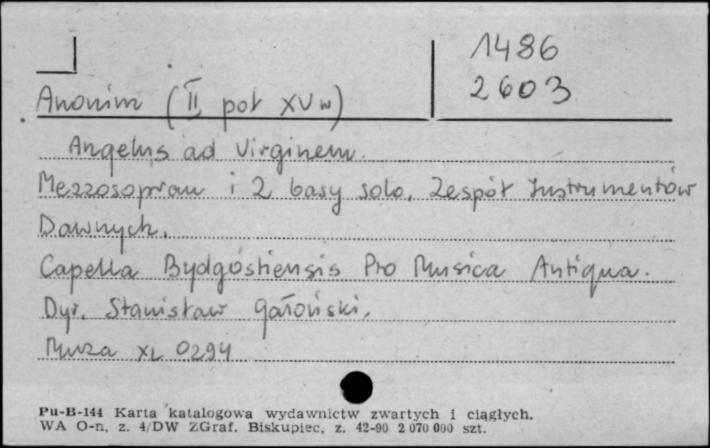 1486
2603
Anonim (II poł XV w)
Angelus ad Virginem.
Mezzosopran i 2 basy solo. Zespół Instrumentów
Dawnych.
Capella Bydgostiensis Pro Musica Antiqua.
Dyr. Stanisław Gałoński.
Muza XL 0294
Pu-B-144 Karta katalogowa wydawnictw zwartych i ciągłych.
WA O-n, z. 4/DW ZGraf. Biskupiec, z. 42-90 2 070 000 szt.